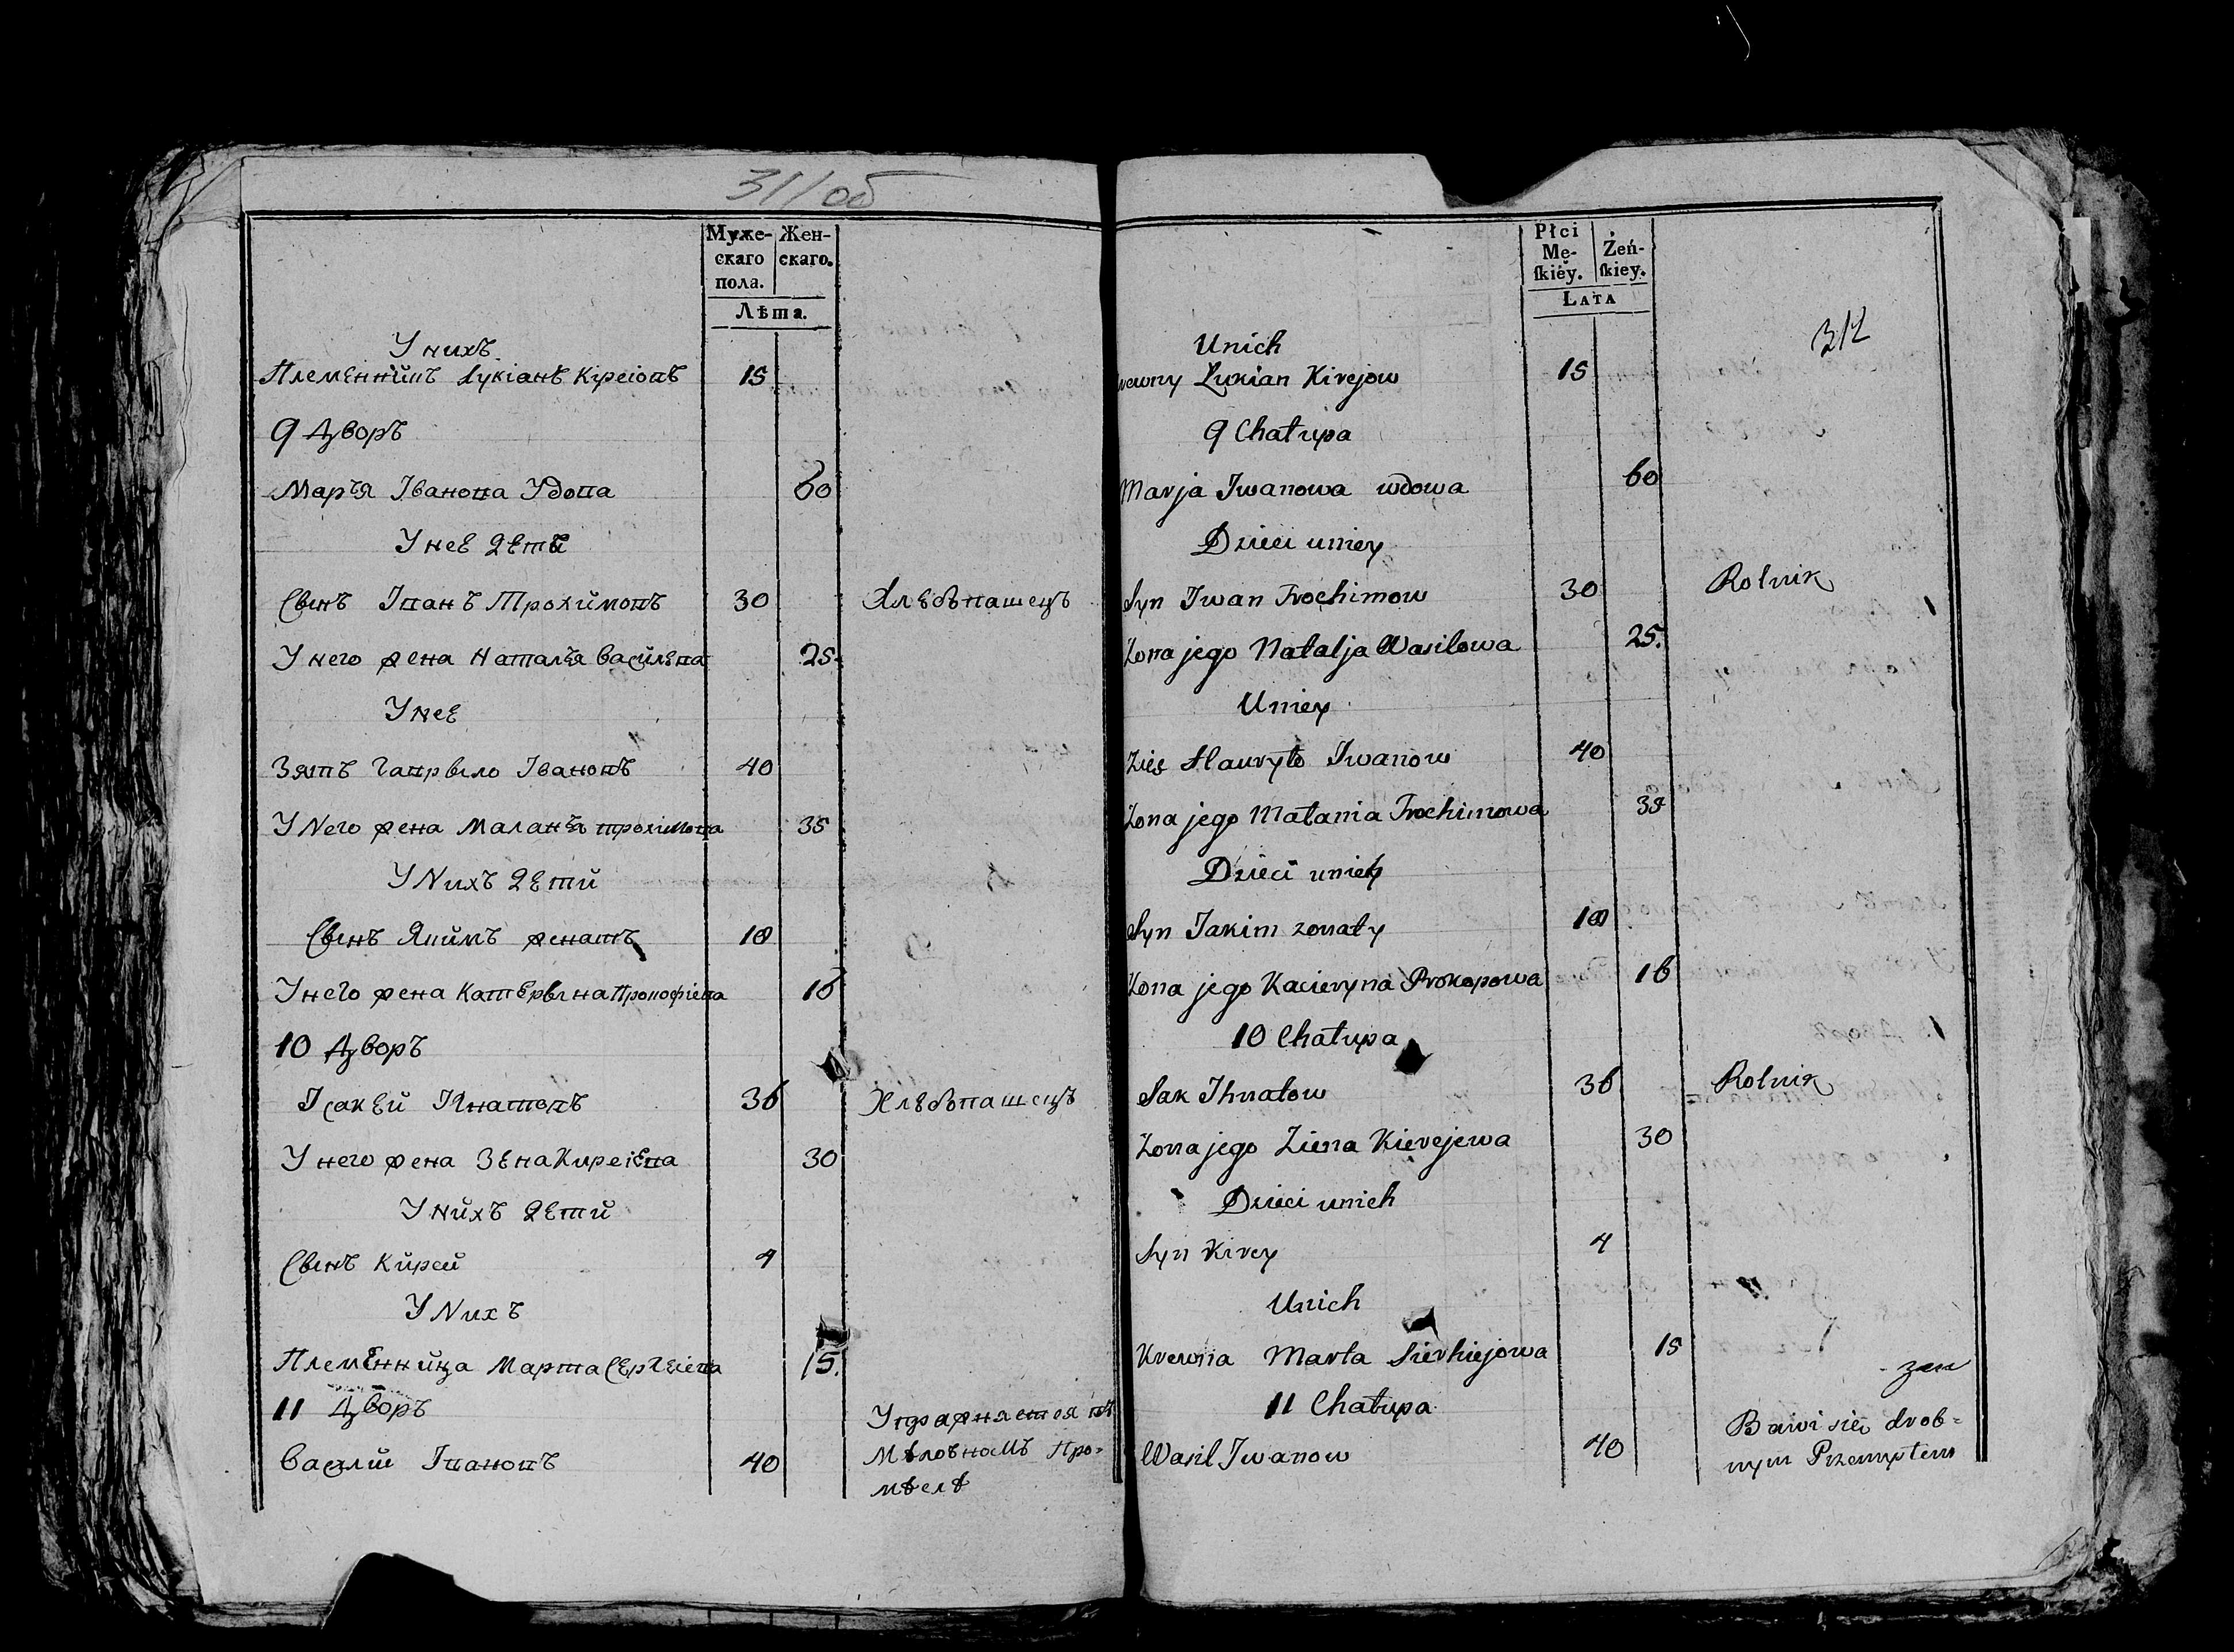 311об
Муже-
скаго
пола.
Жен-
скаго.
Лѣта.
У нихъ
Племенникъ Лукіанъ Кіреіовъ 15
9 Дворъ
Марья Іванова Удова 60
У неE дети
Сынъ Іванъ Трохимовъ 30 Хлебопашецъ
У него жена Наталья Василева 25.
У неE
Зять Гаврыло Івановъ 40
У него жена Маланья трохимова 35
У нихъ дети
Сынъ Якимъ женатъ 18
У него жена Катерына Прокофіева 16
10 Дворъ
Ісакей Ігнатовъ 36 Хлебопашецъ
У него жена Зена Киреіева 30
У нихъ дети
Сынъ Кирей 4
У нихъ
Племенница Марта Сергеіева 15.
11 Дворъ
Василй Івановъ 40
Упражняется въ
Мѣлочномъ Про-
мѣслѣ
Płci
Mę-
ſkiéy.
Żeń-
ſkiey.
LATA
312
Unich
Krewny Łukian Kirejow 15
9 Chałupa
Marja Iwanowa wdowa 60
Dzieci uniey
Syn Iwan Trochimow 30 Rolnik
Zona jego Natalja Wasilowa 25.
Uniey
Zięć Hauryło Iwanow 40
Zona jego Małania Trochimowa 35
Dzieci unich
Syn Jakim zonaty 18
Zona jego Kacieryna Prokopowa 16
10 Chałupa
Sak Ihnatow 36 Rolnik
Zona jego Ziena Kierejewa 30
Dzieci unich
Syn Kirey 4
Unich
Krewna Marta Sierhiejowa 15
11 Chałupa
Wasil Iwanow 40
Bawi sie drob=
nym Przemysłem